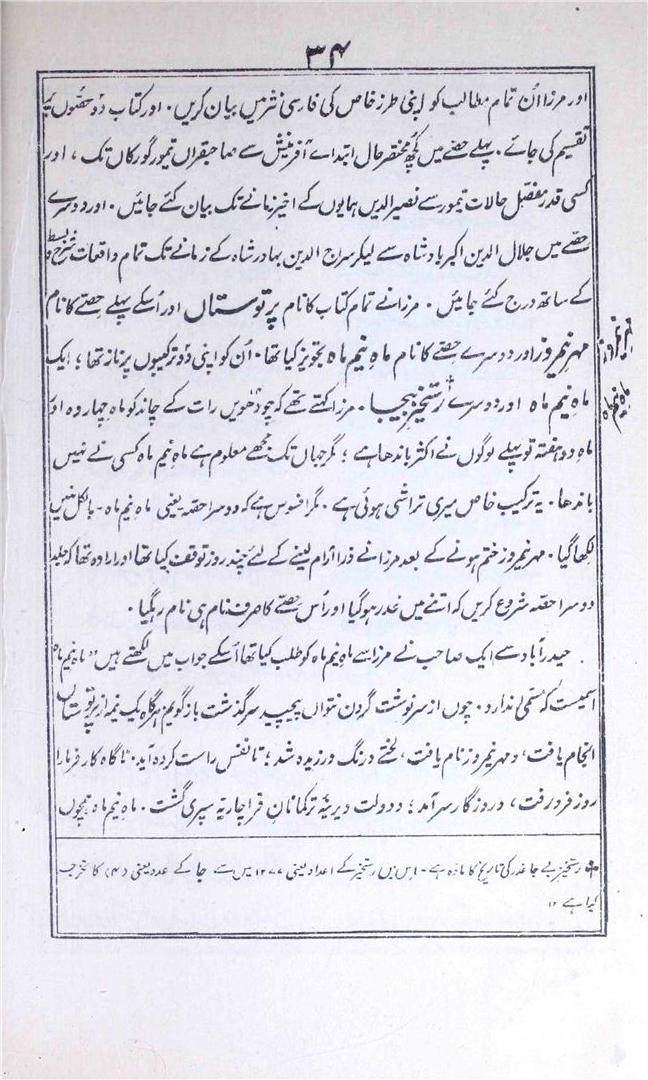 ۳۴
اور مرزا اُن تمام مطالب کو اپنی طرز خاص کی فارسی نثر میں بیان کریں۔ اور کتاب دو حصّوں پر
تقسیم کی جائے۔ پہلے حصّے میں کچھ مختصر حال ابتداے آفرینش سے صاحبقراں تیمور گورکاں تک، اور
کسی قدر مفصّل حالات تیمور سے نصیر الدین ہمایوں کے اخیر زمانے تک بیان کئے جائیں۔ اور دوسرے
حصّے میں جلال الدین اکبر بادشاہ سے لیکر سراج الدین بہادر شاہ کے زمانے تک تمام واقعات شرح و بسط
کے ساتھ درج کئے جائیں۔ مرزا نے تمام کتاب کا نام پرتوستاں اور اُسکے پہلے حصّے کا نام
مہر نیمروز اور دوسرے حصّے کا نام ماہِ نیم ماہ تجویز کیا تھا۔ اُن کو اپنی دو ترکیبوں پر ناز تھا؛ ایک
مہر نیمروز
ماہ نیم ماہ
ماہِ نیم ماہ اور دوسرے رستخیز بیجا۔ مرزا کہتے تھے کہ چودھویں رات کے چاند کو ماہِ چہاردہ اور
ماہِ دو ہفتہ تو پہلے لوگوں نے اکثر باندھا ہے؛ مگر جہاں تک مجھے معلوم ہے ماہِ نیم ماہ کسی نے نہیں
باندھا۔ یہ ترکیب خاص میری تراشی ہوئی ہے۔ مگر افسوس ہے کہ دوسرا حصّہ یعنی ماہِ نیم ماہ۔ بالکل نہیں
لکھا گیا۔ مہر نیمروز ختم ہونے کے بعد مرزا نے ذرا آرام لینے کے لئے چند روز توقف کیا تھا اور ارادہ تھا کہ جلد
دوسرا حصّہ شروع کریں کہ اتنے میں غدر ہو گیا اور اُس حصّے کا صرف نام ہی نام رہگیا۔
حیدرآباد سے ایک صاحب نے مرزا سے ماہِ نیم ماہ کو طلب کیا تھا اُسکے جواب میں لکھتے ہیں "ماہِ نیم ماہ
اسمیست کہ مسمیٰ ندارد۔ چوں از سرنوشت گردن نتواں پیچید سرگذشت بازگویم ہر گاہ یک نیمہ از پرتوستاں
انجام یافت، و مہر نیمروز نام یافت، لختے درنگ ورزیدہ شد؛ تا نفس راست کردہ آید۔ ناگاہ کار فرما را
روز فرو رفت، و روزگار سرآمد؛ و دولت دیرینۂ ترکمانانِ قراچاریہ سپری گشت۔ ماہِ نیم ماہ ہمچوں
رستخیز بے جا غدر کی تاریخ کا مادہ ہے۔ اِس میں رستخیز کے اعداد یعنی ۱۲۷۷ میں سے جا کے عدد یعنی (۴) کا تخرجہ
کیا ہے ۱۲